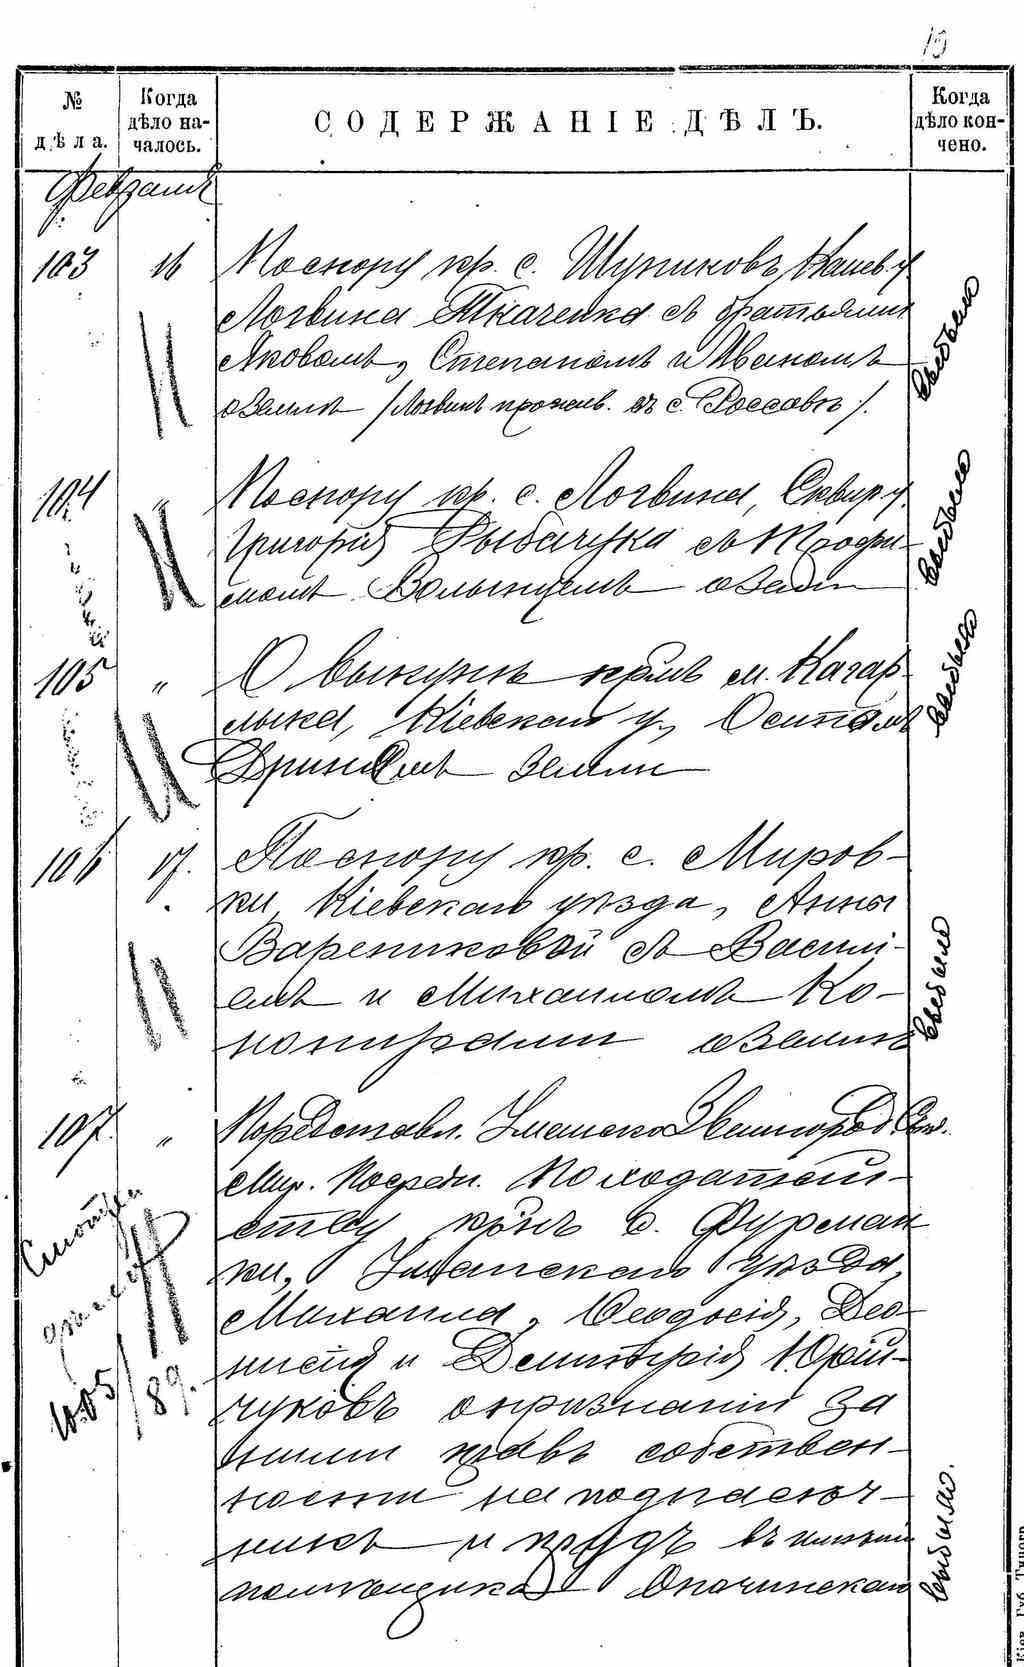 19
№ дѣла.
Когда дѣло началось.
СОДЕРЖАНІЕ ДѢЛЪ.
Когда дѣло кончено.
Февраля
103 16 По спору кр. с. Шупиковъ, Канев. у
Логвина Ткаченка съ братьями
Яковомъ, Степаномъ и Иваномъ
о землѣ /Логвинъ прожив. въ с. Россавѣ/.
выбыло
104 " По спору кр. с. Логвина, Сквир. у.
Григорія Рыбачука съ Трофи-
момъ Волынцемъ о
выбыло
105 " О выкупѣ кр-мъ м. Кагар-
лыка, Кіевскаго у, Осипомъ
землѣ
выбыло
106 17. По спору кр. с. Миров-
ки, Кіевскаго уѣзда, Анны
Варениковой съ Василі-
емъ и Михаиломъ Ко-
ноградами о землѣ
выбыло
107. " По представл. Уманско Звенигород. Съѣз.
Мир. Посредн. По ходатай-
ству кр-нъ с. Фурман-
ки, Уманскаго уѣзда,
Михаила, Ѳеодосія, Део-
нисія и Димитрія Юрій-
чуковъ о признаніи за
ними правъ собствен-
ности на подпасѣч-
никъ и прудъ въ имѣніи
помѣщика Опочинскаго
выбыло.
Смотри
1005/89.
Кіев. Губ. Типогр.